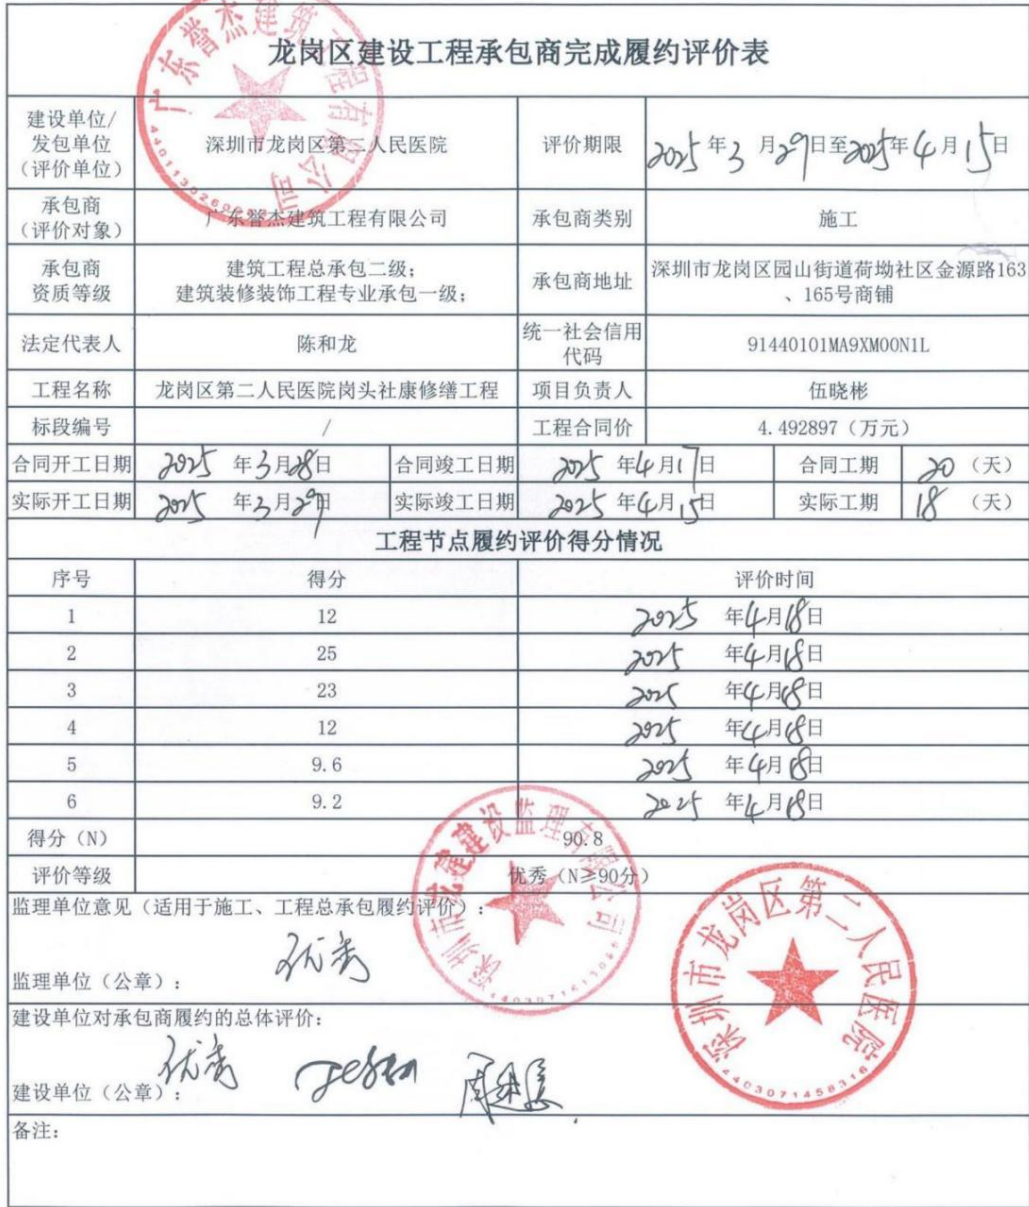 龙岗区建设工程承包商完成履约评价表
建设单位/
发包单位
（评价单位）
深圳市龙岗区第二人民医院
评价期限
2025年3月29日至2025年4月15日
承包商
（评价对象）
广东誉杰建筑工程有限公司
承包商类别
施工
承包商
资质等级
建筑工程总承包二级；
建筑装修装饰工程专业承包一级；
承包商地址
深圳市龙岗区园山街道荷坳社区金源路163
、165号商铺
法定代表人
陈和龙
统一社会信用
代码
91440101MA9XM00N1L
工程名称
龙岗区第二人民医院岗头社康修缮工程
项目负责人
伍晓彬
标段编号
/
工程合同价
4.492897（万元）
合同开工日期
2025年3月28日
合同竣工日期
2025年4月17日
合同工期
20（天）
实际开工日期
2025年3月29日
实际竣工日期
2025年4月15日
实际工期
18（天）
工程节点履约评价得分情况
序号
得分
评价时间
1
12
2025年4月18日
2
25
2025年4月18日
3
23
2025年4月18日
4
12
2025年4月18日
5
9.6
2025年4月18日
6
9.2
2025年4月18日
得分（N）
90.8
评价等级
优秀（N≥90分）
监理单位意见（适用于施工、工程总承包履约评价）：
优秀
监理单位（公章）：
建设单位对承包商履约的总体评价：
优秀
建设单位（公章）：
备注：
广东誉杰建筑工程有限公司
深圳市龙建建设监理有限公司
深圳市龙岗区第二人民医院
4403071458316